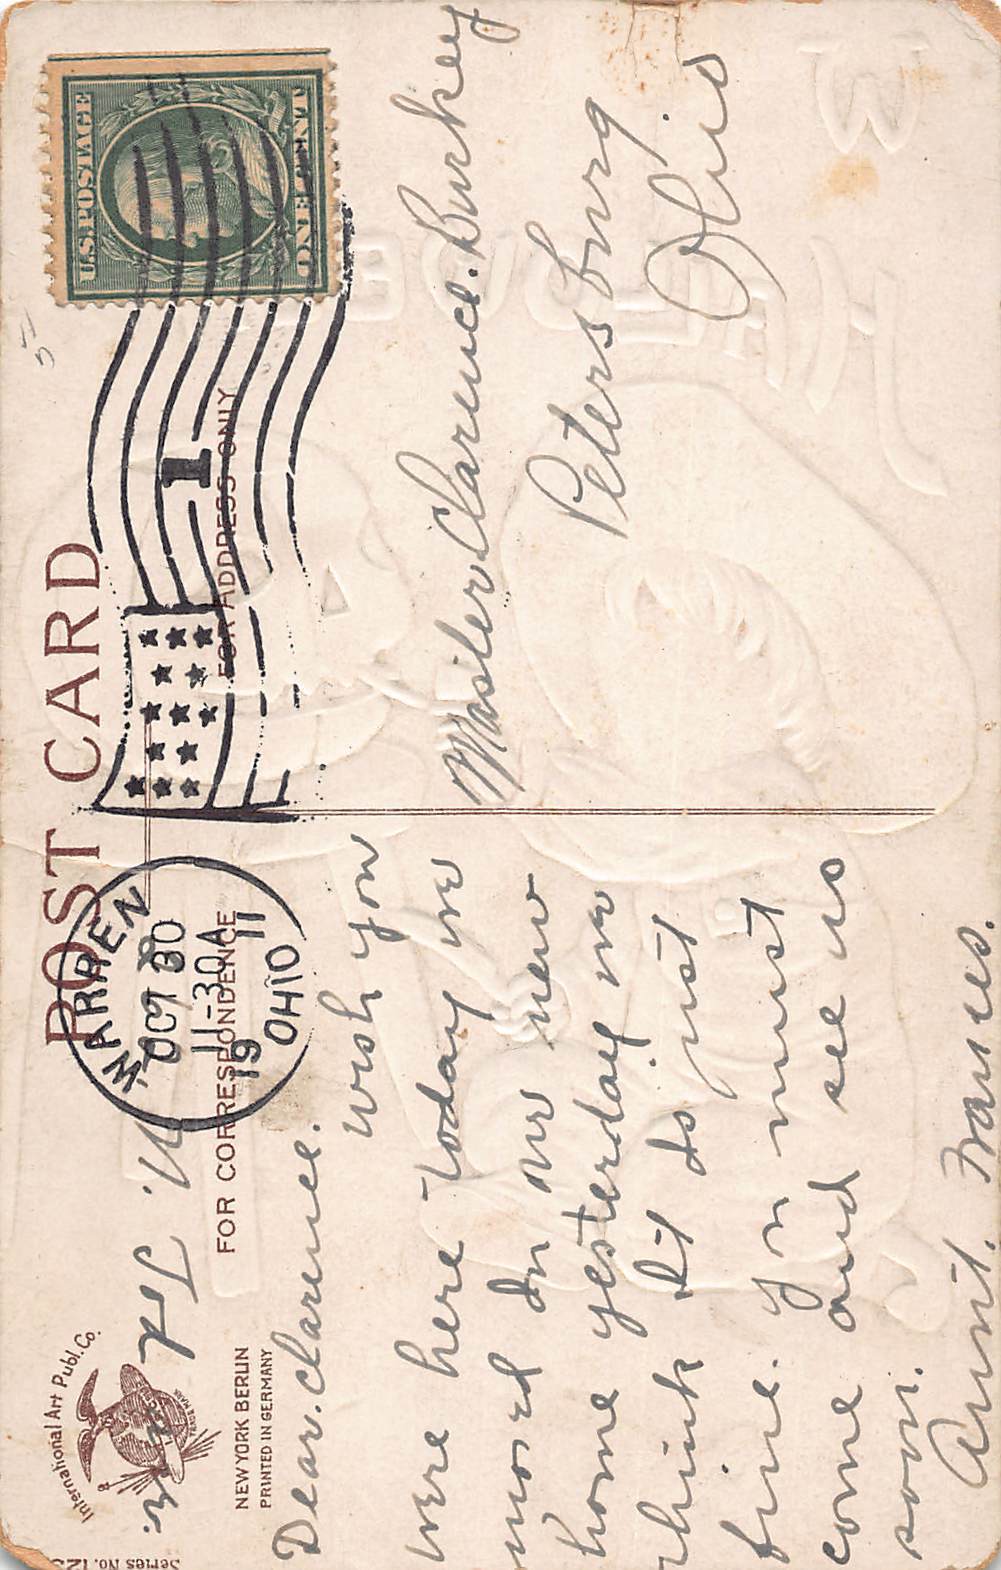 POST CARD
International Art Publ. Co.
TRADE MARK
NEW YORK BERLIN
PRINTED IN GERMANY
FOR CORRESPONDENCE
FOR ADDRESS ONLY
U.S. POSTAGE
ONE CENT
WARREN
OCT 30
11-30A
19 11
OHIO
1
Dear. Clarence.
wish you
were here today we
moved In our new
home yesterday we
think It Is just
fine. you must
come and see us
soon.
Aunt. Frances.
Master Clarence. Burkey
Petersburg
Ohio
Series No.